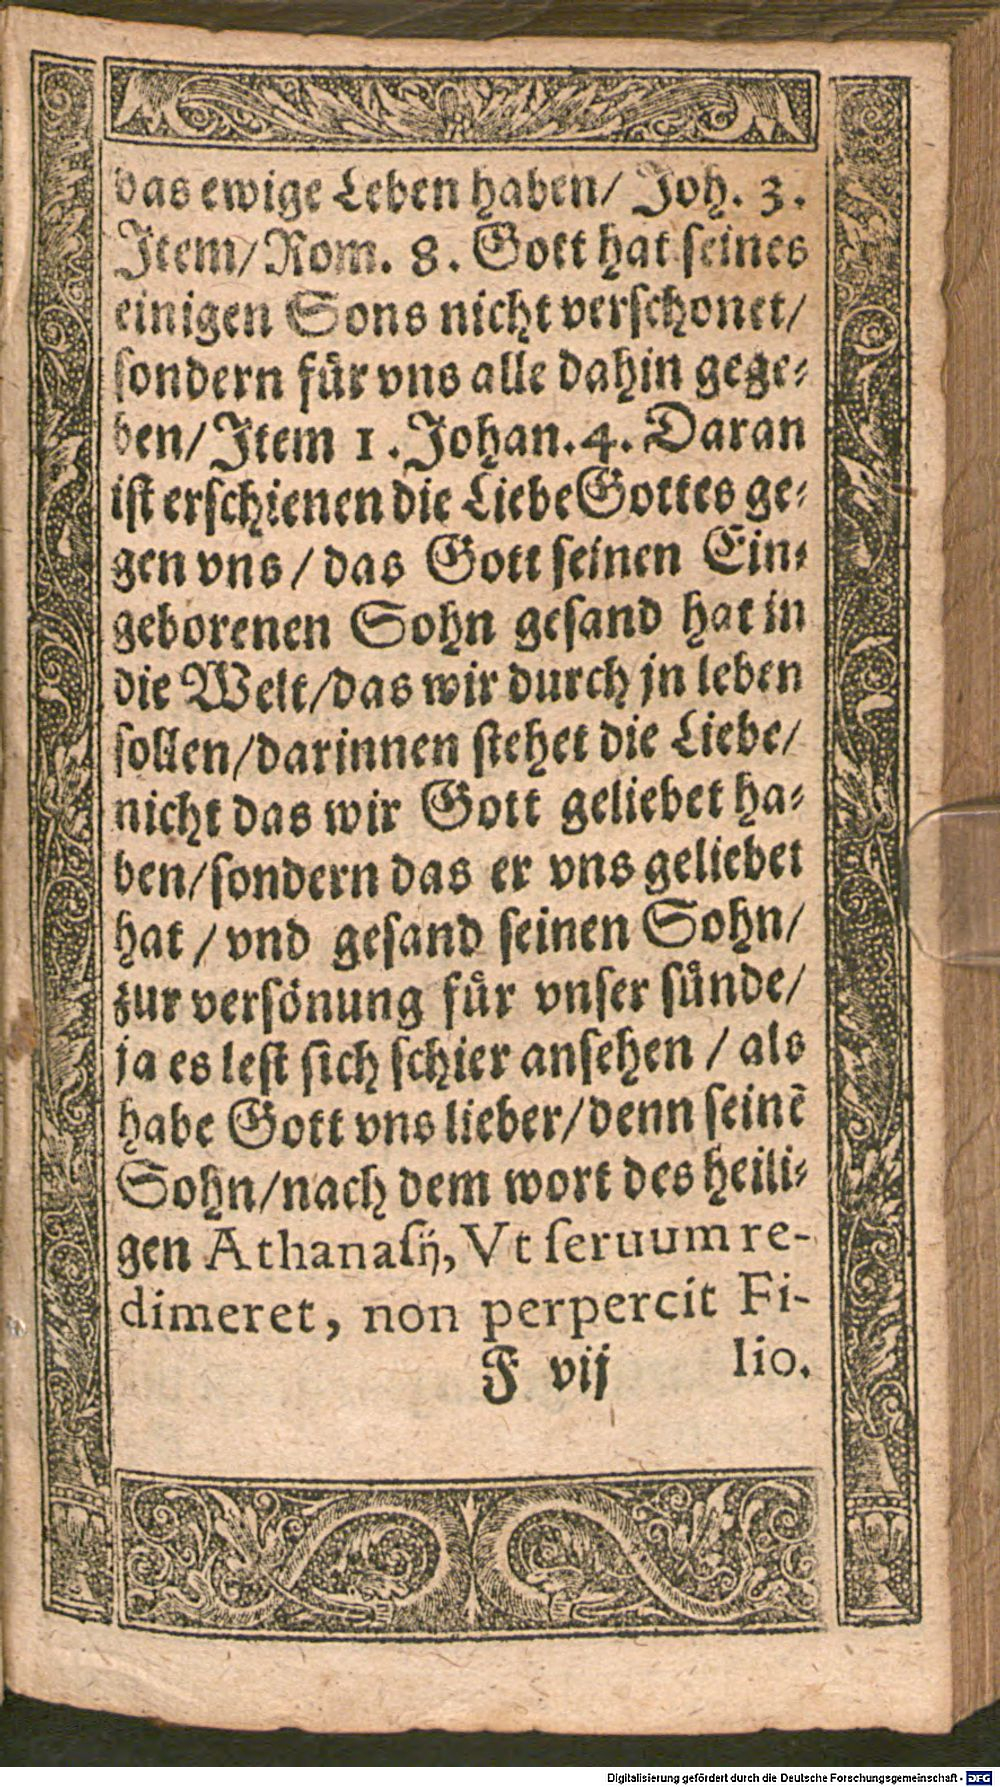 das ewige Leben haben/ Joh. 3.
Item/ Rom. 8. Gott hat seines
einigen Sons nicht verschonet/
sondern für vns alle dahin gege⸗
ben/ Item 1. Johan. 4. Daran
ist erschienen die Liebe Gottes ge⸗
gen vns / das Gott seinen Ein⸗
geborenen Sohn gesand hat in
die Welt/ das wir durch jn leben
sollen/ darinnen stehet die Liebe/
nicht das wir Gott geliebet ha⸗
ben/ sondern das er vns geliebet
hat / vnd gesand seinen Sohn/
zur versönung für vnser sünde/
ja es lest sich schier ansehen / als
habe Gott vns lieber/ denn seinē
Sohn/ nach dem wort des heili⸗
gen Athanasij, Vt seruum re-
dimeret, non perpercit Fi-
F vij lio.
Digitalisierung gefördert durch die Deutsche Forschungsgemeinschaft - DFG